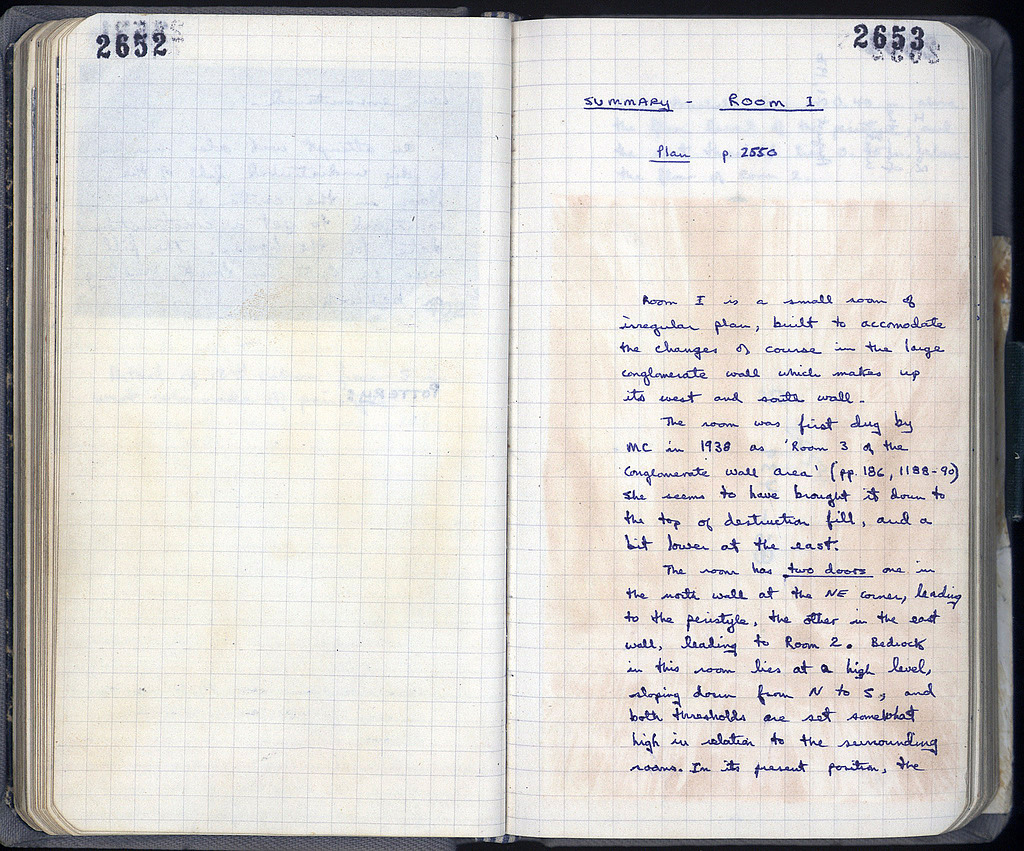 2652
2653
SUMMARY - ROOM I
Plan p. 2550
Room I is a small room of
irregular plan, built to accomodate
the changes of course in the large
conglomerate wall which makes up
its west and south wall.
The room was first dug by
MC in 1938 as 'Room 3 of the
conglomerate wall area' (pp. 186, 1188-90)
She seems to have brought it down to
the top of destruction fill, and a
bit lower at the east.
The room has two doors one in
the north wall at the NE corner, leading
to the peristyle, the other in the east
wall, leading to Room 2. Bedrock
in this room lies at a high level,
sloping down from N to S, and
both thresholds are set somewhat
high in relation to the surrounding
rooms. In its present position, the